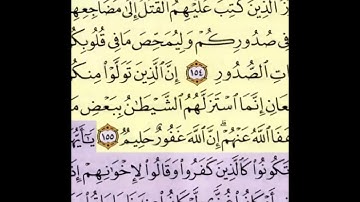 ـزَ ٱلَّذِينَ كُتِبَ عَلَيْهِمُ ٱلْقَتْلُ إِلَىٰ مَضَاجِعِهِـ
فِى صُدُورِكُمْ وَلِيُمَحِّصَ مَا فِى قُلُوبِكُـ
ـاتِ ٱلصُّدُورِ ١٥٤ إِنَّ ٱلَّذِينَ تَوَلَّوْا۟ مِنكُـ
ـعَانِ إِنَّمَا ٱسْتَزَلَّهُمُ ٱلشَّيْطَٰنُ بِبَعْضِ مَـ
ـفَا ٱللَّهُ عَنْهُمْ ۗ إِنَّ ٱللَّهَ غَفُورٌ حَلِيمٌ ١٥٥ يَٰٓأَيُّهَـ
تَكُونُوا۟ كَٱلَّذِينَ كَفَرُوا۟ وَقَالُوا۟ لِإِخْوَٰنِهِمْ إِذَ